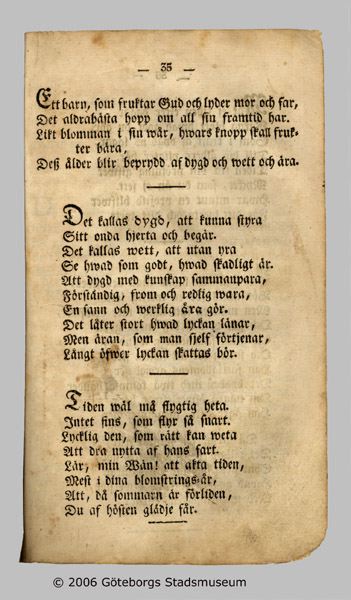 — 35 —
Ett barn, som fruktar Gud och lyder mor och far,
Det aldrabästa hopp om all sin framtid har.
Likt blomman i sin wår, hwars knopp skall fruk-
ter bära,
Deß ålder blir beprydd af dygd och wett och ära.
Det kallas dygd, att kunna styra
Sitt onda hjerta och begär.
Det kallas wett, att utan yra
Se hwad som godt, hwad skadligt är.
Att dygd med kunskap sammanpara,
Förståndig, from och redlig wara,
En sann och werklig ära gör.
Det låter stort hwad lyckan länar,
Men äran, som man sjelf förtjenar,
Långt öfwer lyckan skattas bör.
Tiden wäl må flygtig heta.
Intet fins, som flyr så snart.
Lycklig den, som rätt kan weta
Att dra nytta af hans fart.
Lär, min Wän! att akta tiden,
Mest i dina blomstrings-år,
Att, då sommarn är förliden,
Du af hösten glädje får.
© 2006 Göteborgs Stadsmuseum